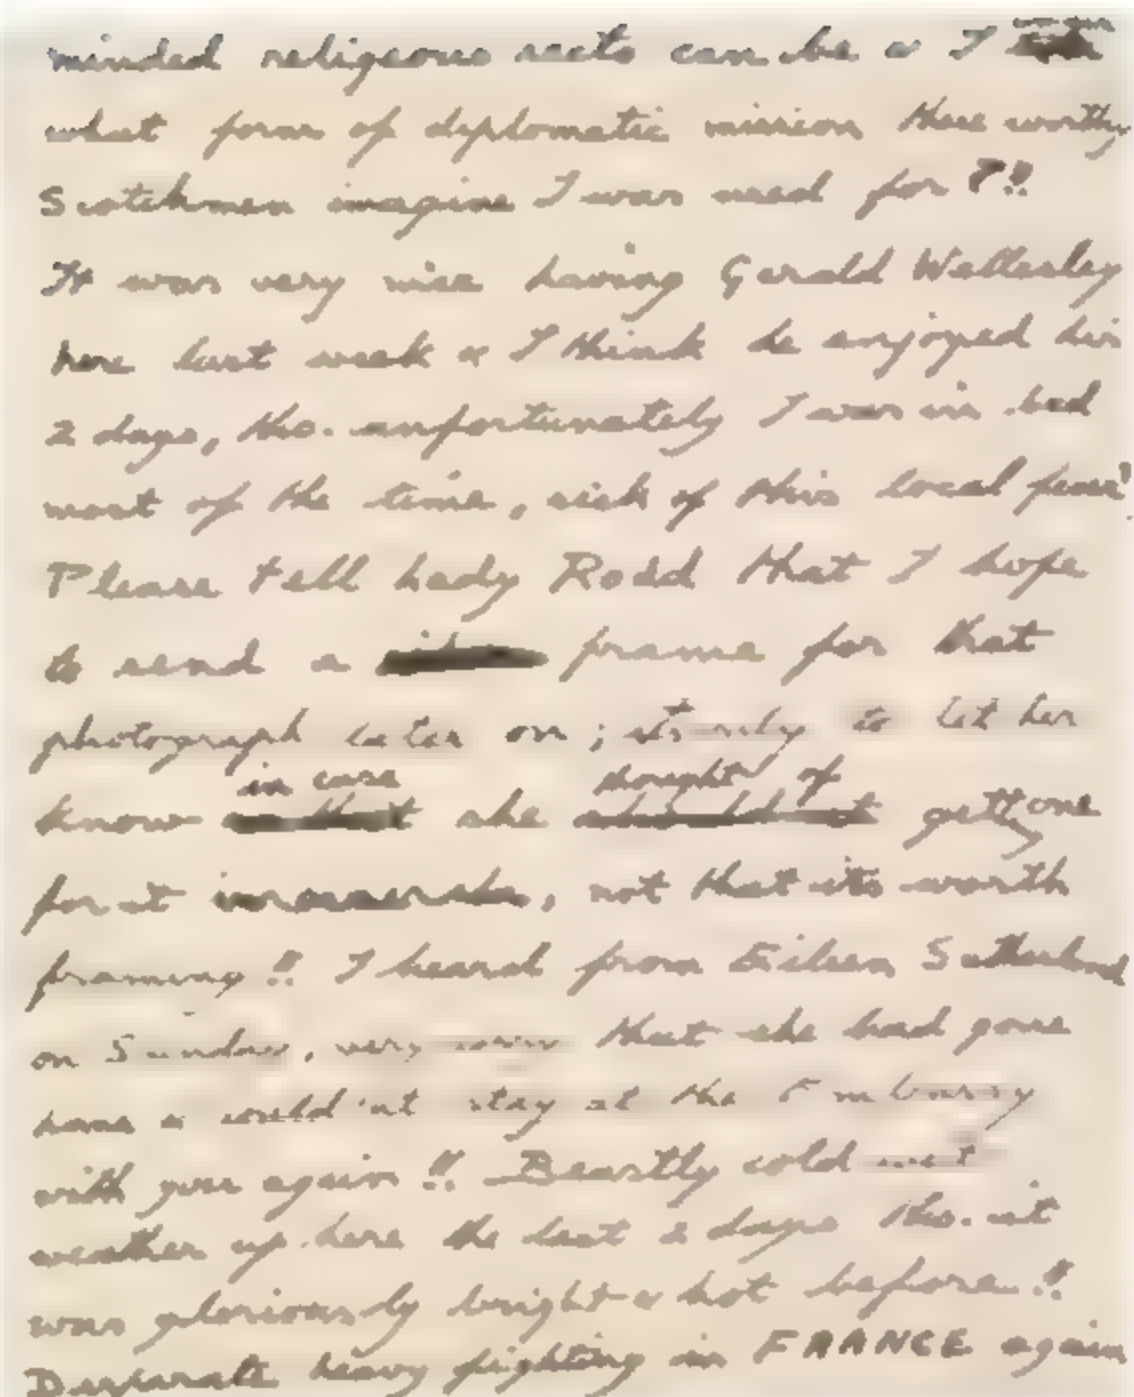 minded religeous sects can be & I wonder
what form of diplomatic mission these worthy
Scotchmen imagine I was used for ?!!
It was very nice having Gerald Wellesley
here last week & I think he enjoyed his
2 days, tho. unfortunately I was in bed
most of the time, sick of this local fever!
Please tell Lady Rodd that I hope
to send a frame for that
photograph later on; its only to let her
know in case she thought of getting one
for it, not that its worth
framing!! I heard from Eileen Sutherland
on Sunday, very that she had gone
home & could'nt stay at the Embassy
with you again!! Beastly cold wet
weather up here the last 2 days tho. it
was gloriously bright & hot before!!
Desparate heavy fighting in FRANCE again